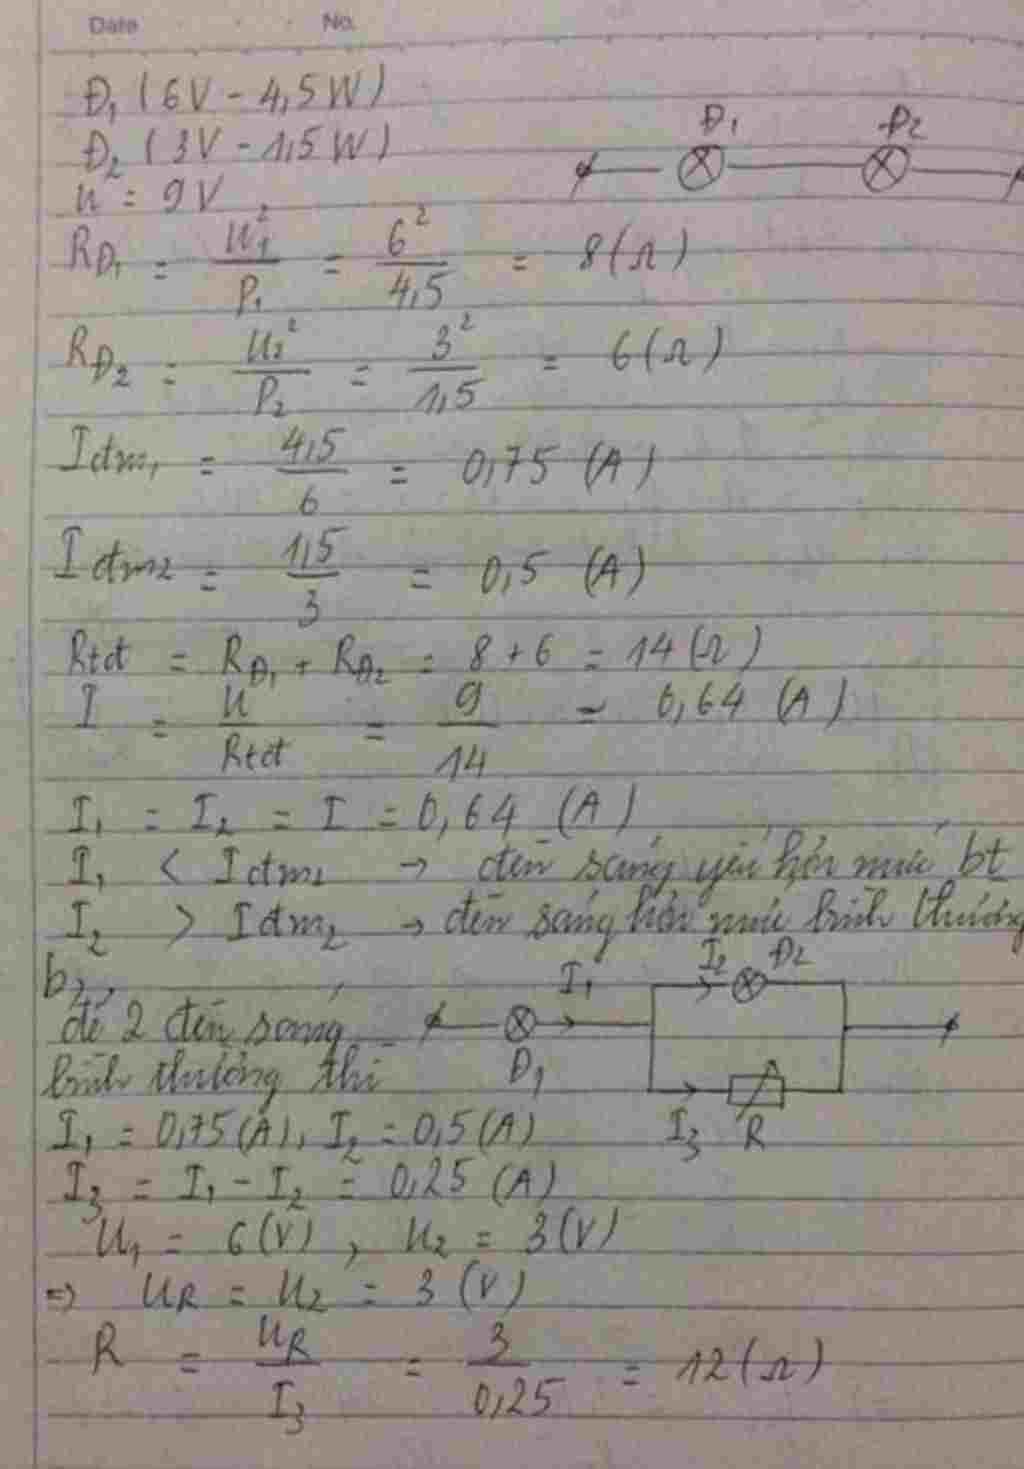 Date No.
Đ₁ (6V - 4,5W)
Đ₂ (3V - 1,5W)
U = 9V
Đ₁ Đ₂
R_Đ₁ = U₁²/P₁ = 6²/4,5 = 8(Ω)
R_Đ₂ = U₂²/P₂ = 3²/1,5 = 6(Ω)
Iđm₁ = 4,5/6 = 0,75 (A)
Iđm₂ = 1,5/3 = 0,5 (A)
Rtđ = R_Đ₁ + R_Đ₂ = 8 + 6 = 14(Ω)
I = U/Rtđ = 9/14 = 0,64 (A)
I₁ = I₂ = I = 0,64 (A)
I₁ < Iđm₁ → đèn sáng yếu hơn mức bt
I₂ > Iđm₂ → đèn sáng hơn mức bình thường
b,
I₁ I₂ Đ₂
để 2 đèn sáng
Đ₁
bình thường thì
I₃ R
I₁ = 0,75(A), I₂ = 0,5(A)
I₃ = I₁ - I₂ = 0,25 (A)
U₁ = 6(V), U₂ = 3(V)
=> U_R = U₂ = 3 (V)
R = U_R/I₃ = 3/0,25 = 12(Ω)